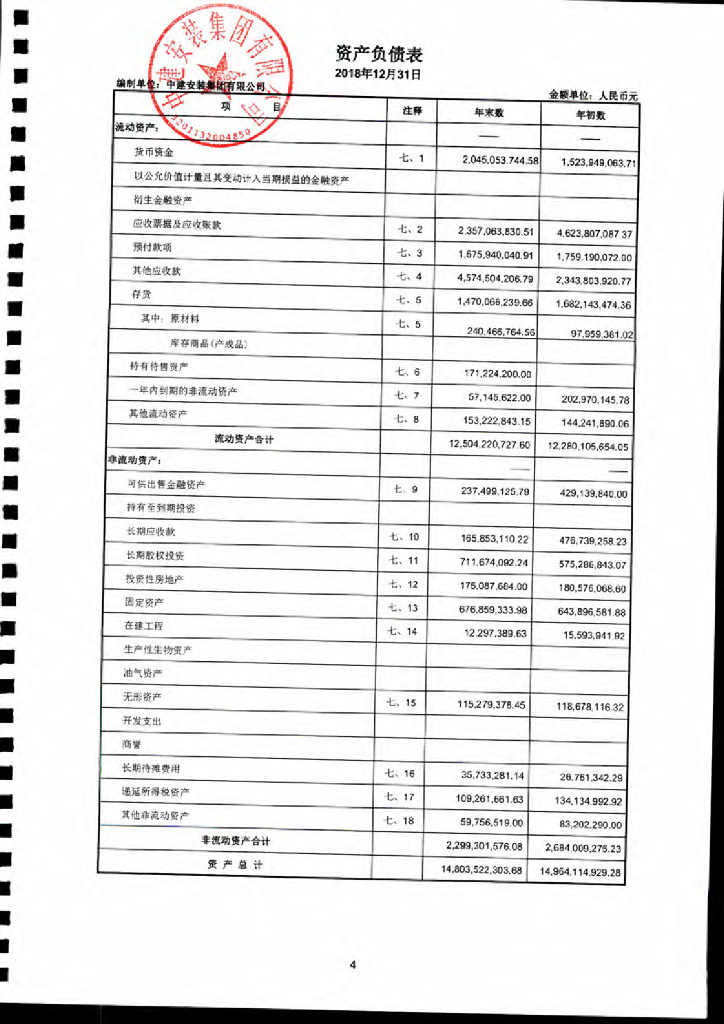 中建安装集团有限公司
3201132004850
资产负债表
2018年12月31日
编制单位：中建安装集团有限公司 金额单位：人民币元
项 目 注释 年末数 年初数
流动资产： —— ——
货币资金 七、1 2,045,053,744.58 1,523,949,063.71
以公允价值计量且其变动计入当期损益的金融资产
衍生金融资产
应收票据及应收账款 七、2 2,357,063,830.51 4,623,807,087.37
预付款项 七、3 1,675,940,040.91 1,759,190,072.00
其他应收款 七、4 4,574,504,206.79 2,343,803,920.77
存货 七、5 1,470,066,239.66 1,682,143,474.36
其中：原材料 七、5 240,466,764.56 97,959,381.02
库存商品(产成品)
持有待售资产 七、6 171,224,200.00
一年内到期的非流动资产 七、7 57,145,622.00 202,970,145.78
其他流动资产 七、8 153,222,843.15 144,241,890.06
流动资产合计 12,504,220,727.60 12,280,105,654.05
非流动资产： —— ——
可供出售金融资产 七、9 237,499,125.79 429,139,840.00
持有至到期投资
长期应收款 七、10 165,853,110.22 476,739,258.23
长期股权投资 七、11 711,674,092.24 575,286,843.07
投资性房地产 七、12 175,087,684.00 180,576,068.60
固定资产 七、13 676,859,333.98 643,896,581.88
在建工程 七、14 12,297,389.63 15,593,941.92
生产性生物资产
油气资产
无形资产 七、15 115,279,378.45 118,678,116.32
开发支出
商誉
长期待摊费用 七、16 35,733,281.14 26,761,342.29
递延所得税资产 七、17 109,261,661.63 134,134,992.92
其他非流动资产 七、18 59,756,519.00 83,202,290.00
非流动资产合计 2,299,301,576.08 2,684,009,275.23
资 产 总 计 14,803,522,303.68 14,964,114,929.28
4